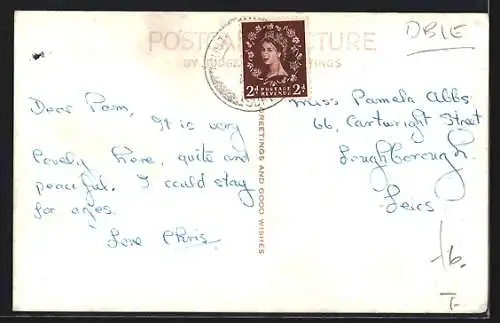 DB1E
POSTCARD PICTURE
BY JUDGES GREETINGS
2d POSTAGE REVENUE 2d
Dear Pam,
It is very
lovely here, quite and
peaceful. I could stay
for ages.
Love Chris.
GREETINGS AND GOOD WISHES
Miss Pamela Abbs.
66, Cartwright Street
Loughborough.
Leics